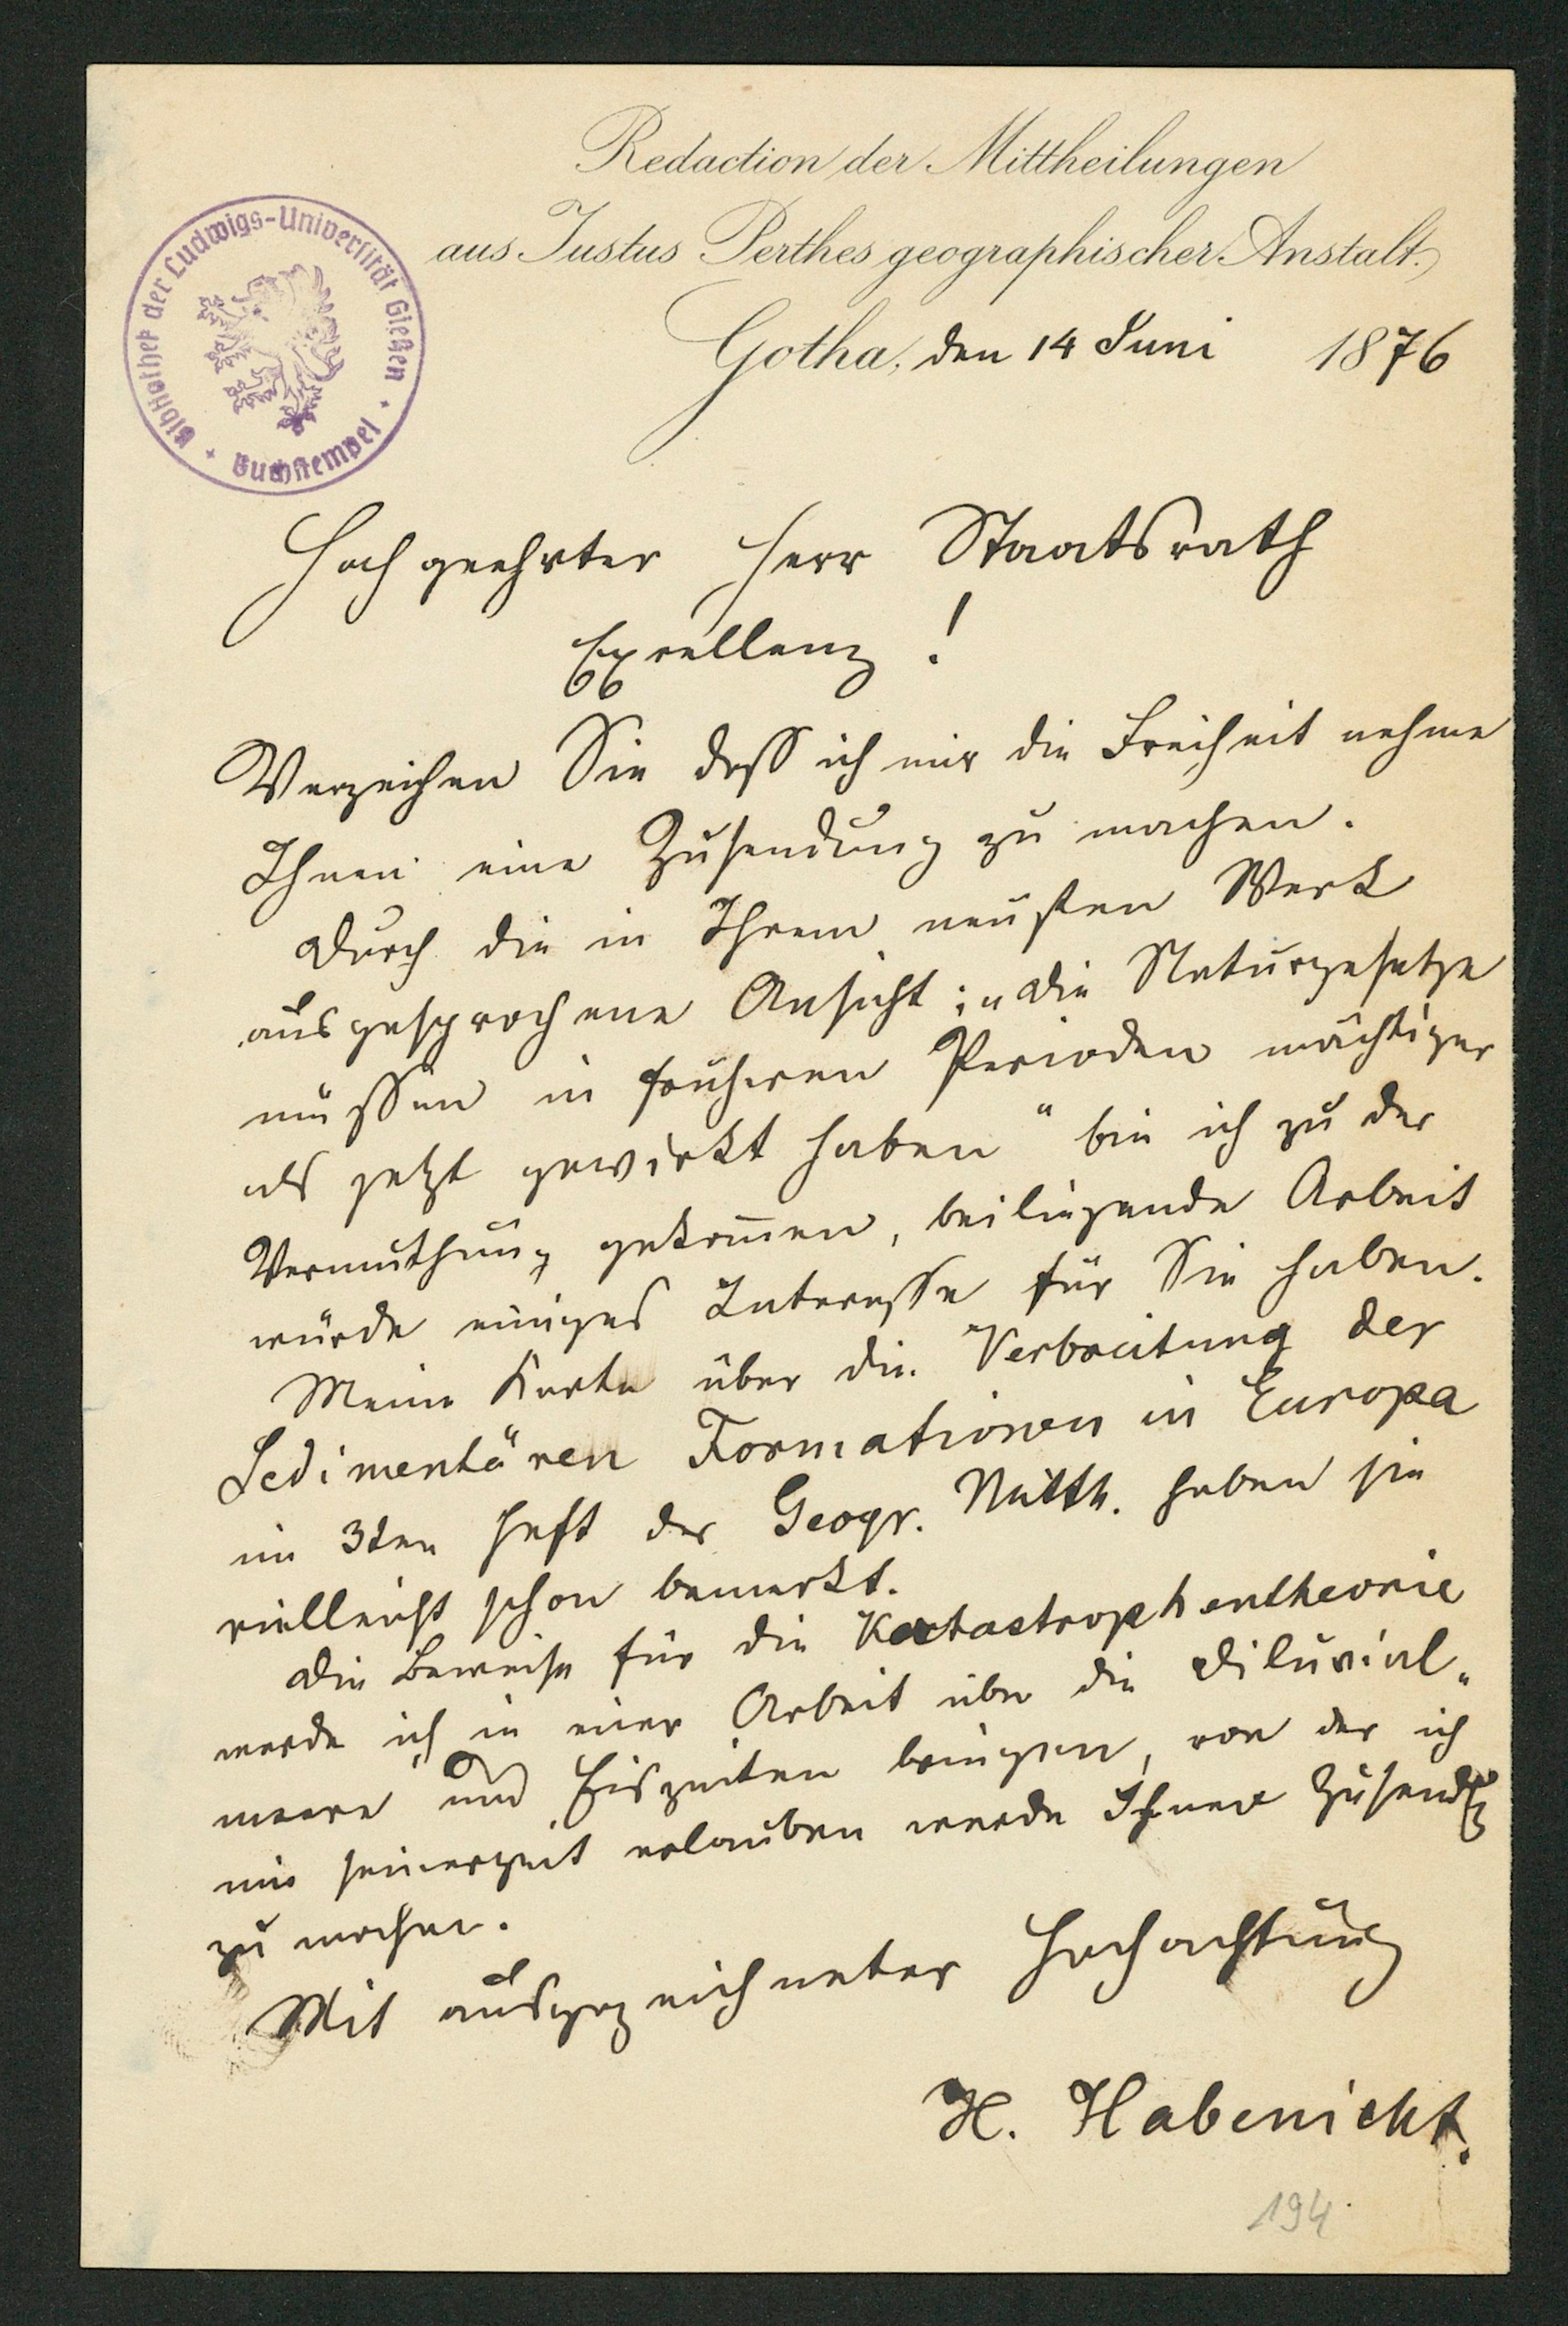 Redaction der Mittheilungen
aus Justus Perthes geographischer Anstalt.
Gotha, den 14 Juni 1876
Bibliothek der Ludwigs-Universität Gießen
Buchstempel
Hochgeehrter Herr Staatsrath
Excellenz!
Verzeihen Sie dass ich mir die Freiheit nehme
Ihnen eine Zusendung zu machen.
Durch die in Ihrem neusten Werk
ausgesprochene Ansicht: „die Naturgesetze
müssen in früheren Perioden mächtiger
als jetzt gewirkt haben“ bin ich zu der
Vermuthung gekom̅en, beiliegende Arbeit
würde einiges Interesse für Sie haben.
Meine Karte über die Verbreitung der
Sedimentären Formationen in Europa
im 3ten Heft der Geogr. Mitth. haben sie
vielleicht schon bemerkt.
Die Beweise für die Katastrophentheorie
werde ich in einer Arbeit über die Diluvial-
meere und Eiszeiten bringen, von der ich
mir seinerzeit erlauben werde Ihnen Zusendg
zu machen.
Mit ausgezeichneter Hochachtung
H. Habenicht.
194